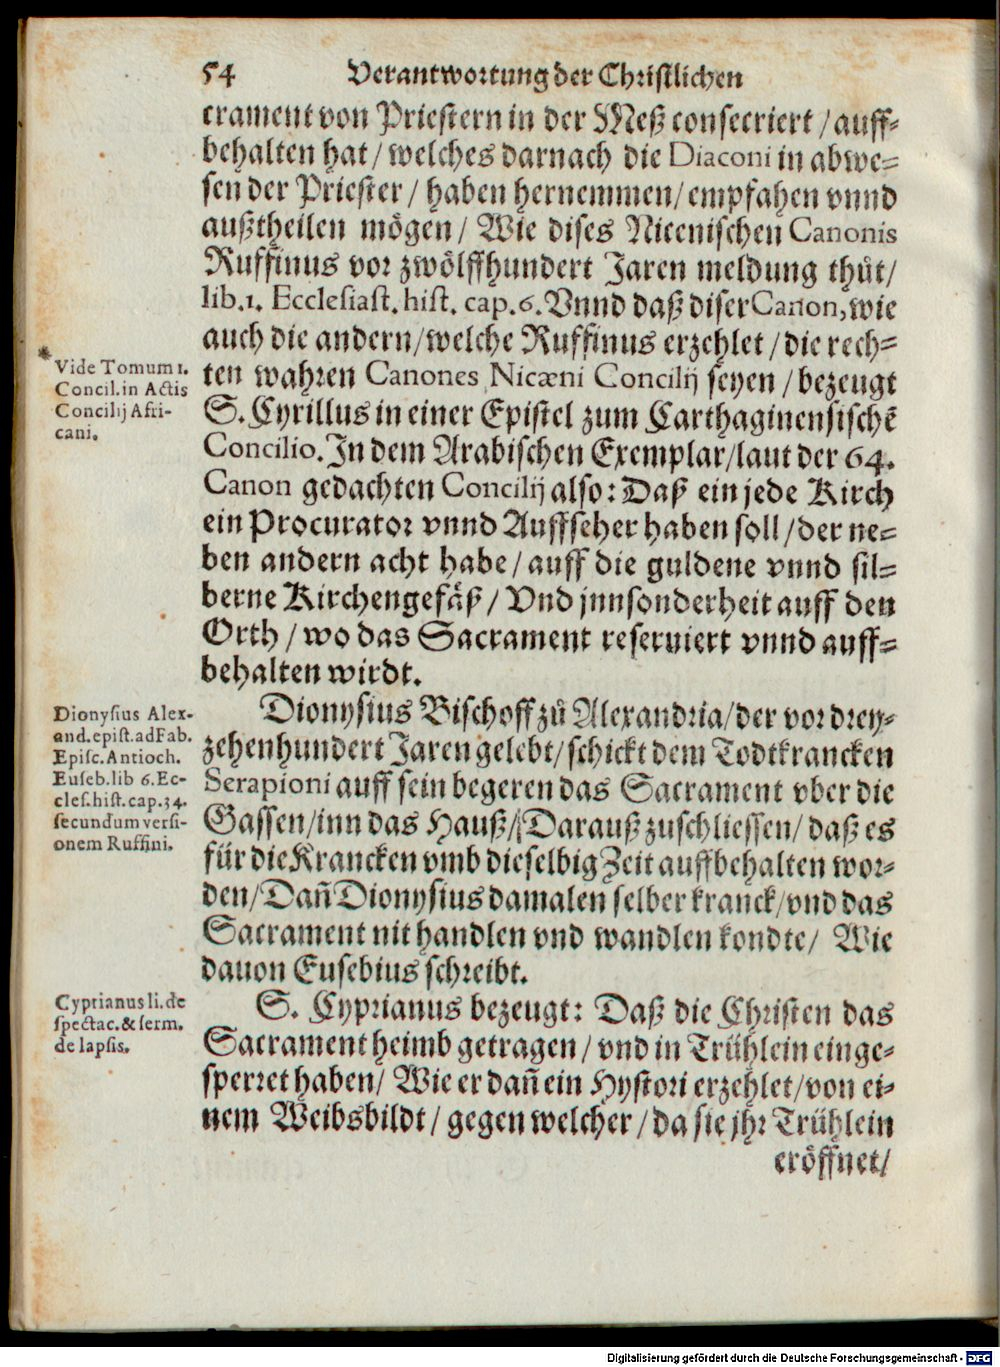 54 Verantwortung der Christlichen
crament von Priestern in der Meß consecriert / auff-
behalten hat / welches darnach die Diaconi in abwe-
sen der Priester / haben hernemmen / empfahen vnnd
außtheilen mögen / Wie dises Nicenischen Canonis
Ruffinus vor zwölffhundert Jaren meldung thůt /
lib. 1. Ecclesiast. hist. cap. 6. Vnnd daß diser Canon, wie
auch die andern / welche Ruffinus erzehlet / die rech-
ten wahren Canones Nicæni Concilij seyen / bezeugt
S. Cyrillus in einer Epistel zum Carthaginensischē
Concilio. In dem Arabischen Exemplar / laut der 64.
Canon gedachten Concilij also: Daß ein jede Kirch
ein Procurator vnnd Auffseher haben soll / der ne-
ben andern acht habe / auff die guldene vnnd sil-
berne Kirchengefäß / Vnd jnnsonderheit auff den
Orth / wo das Sacrament reseruiert vnnd auff-
behalten wirdt.
* Vide Tomum 1.
Concil. in Actis
Concilij Afri-
cani.
Dionysius Bischoff zů Alexandria / der vor drey-
zehenhundert Jaren gelebt / schickt dem Todtkrancken
Serapioni auff sein begeren das Sacrament vber die
Gassen / inn das Hauß / Darauß zuschliessen / daß es
für die Krancken vmb dieselbig Zeit auffbehalten wor-
den / Dañ Dionysius damalen selber kranck / vnd das
Sacrament nit handlen vnd wandlen kondte / Wie
dauon Eusebius schreibt.
Dionysius Alex-
and. epist. ad Fab.
Episc. Antioch.
Euseb. lib 6. Ec-
cles. hist. cap. 34.
secundum versi-
onem Ruffini.
S. Cyprianus bezeugt: Daß die Christen das
Sacrament heimb getragen / vnd in Trühlein einge-
sperret haben / Wie er dañ ein Hystori erzehlet / von ei-
nem Weibsbildt / gegen welcher / da sie jhr Trühlein
eröffnet /
Cyprianus li. de
spectac. & serm.
de lapsis.
Digitalisierung gefördert durch die Deutsche Forschungsgemeinschaft - DFG